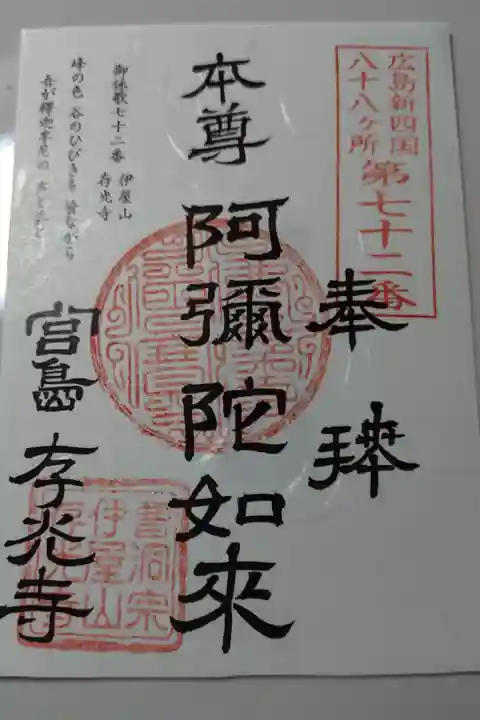 広島新四国
八十八ヶ所 第七十二番
奉拝
本尊 阿彌陀如來
御詠歌七十二番 伊屋山
存光寺
峰の色 谷のひびきも 皆ながら
吾が釋迦牟尼の 声と姿と
宮島 存光寺
曹洞宗
伊屋山
存光寺